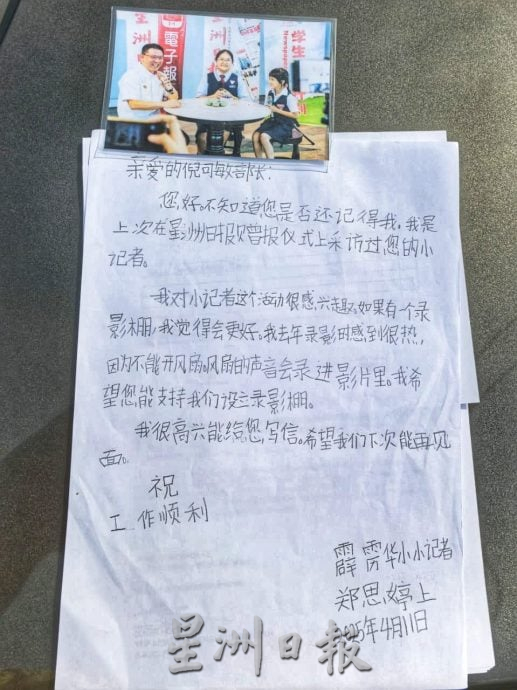 星洲
電子報
学生
Newspaper
亲爱的倪可敏部长：
您好。不知道您是否还记得我，我是
上次在星洲日报赠报仪式上采访过您的小
记者。
我对小记者这个活动很感兴趣。如果有个录
影棚，我觉得会更好。我去年录影时感到很热，
因为不能开风扇。风扇的声音会录进影片里。我希
望您能支持我们设立录影棚。
我很高兴能给您写信。希望我们下次能再见
面。
祝
工作顺利
霹雳华小小记者
郑思婷上
2025年4月11日
星洲日報